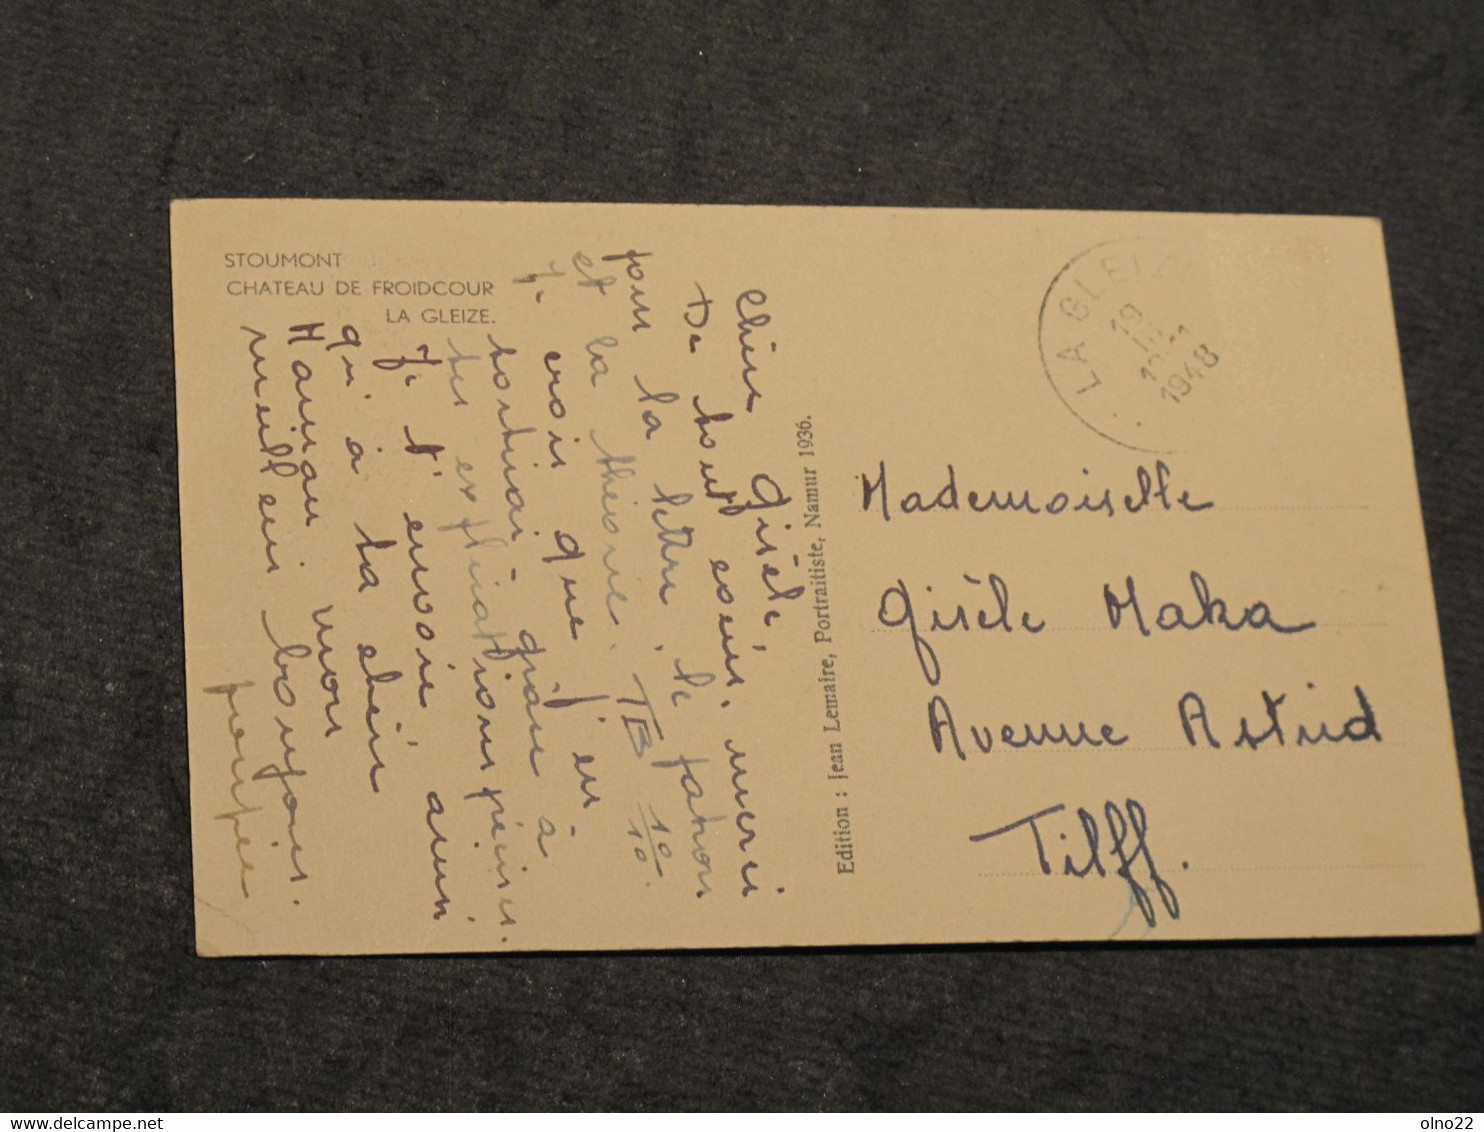 STOUMONT
CHATEAU DE FROIDCOUR
LA GLEIZE.
Chère Gisèle,
De tout coeur, merci
pour la lettre, le patron
et la théorie. TB 10/10.
Je crois que j'en
sortirai grâce à
tes explications précises.
Je t'envoie ainsi
qu'à ta chère
Maman mon
meilleur bonjour.
Edition : Jean Lemaire, Portraitiste, Namur 1936.
LA GLEIZE
19
1948
Mademoiselle
Gisèle Maka
Avenue Astrid
Tilff.
olno22